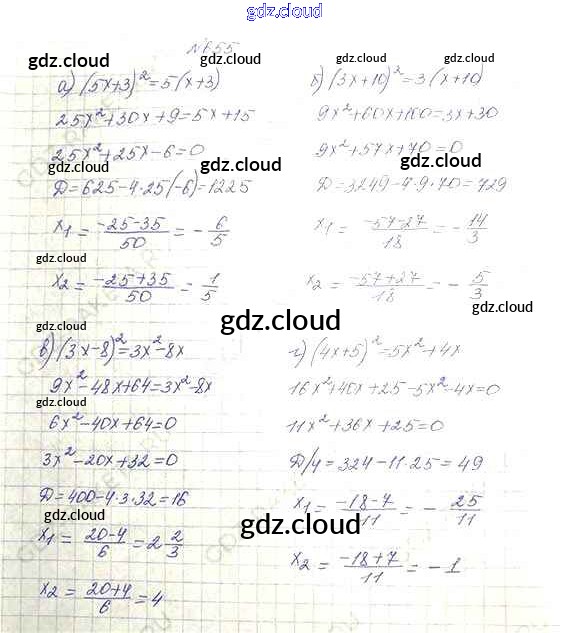 gdz.cloud
№655
gdz.cloud
gdz.cloud
а) (5x+3)²=5(x+3)
25x²+30x+9=5x+15
25x²+25x-6=0
gdz.cloud
D=625-4·25(-6)=1225
x₁= (-25-35)/50 = -6/5
gdz.cloud
x₂= (-25+35)/50 = 1/5
б) (3x+10)²=3(x+10)
9x²+60x+100=3x+30
9x²+57x+70=0
gdz.cloud
D=3249-4·9·70=729
x₁= (-57-27)/18 = -14/3
gdz.cloud
x₂= (-57+27)/18 = -5/3
gdz.cloud
gdz.cloud
в) (3x-8)²=3x²-8x
gdz.cloud
9x²-48x+64=3x²-8x
gdz.cloud
6x²-40x+64=0
3x²-20x+32=0
D=400-4·3·32=16
x₁= (20-4)/6 = 2 2/3
x₂= (20+4)/6 = 4
г) (4x+5)²=5x²+4x
16x²+40x+25-5x²-4x=0
11x²+36x+25=0
D/4=324-11·25=49
x₁= (-18-7)/11 = -25/11
gdz.cloud
x₂= (-18+7)/11 = -1
gdz.cloud
gdz.cloud